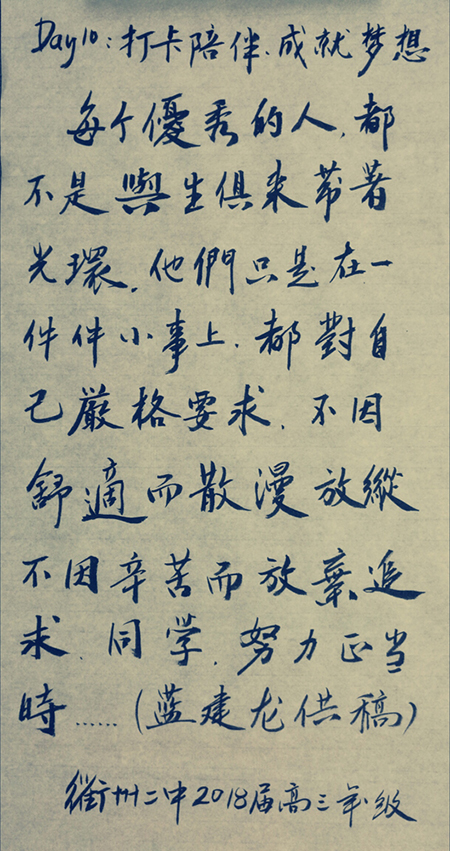 Day10:打卡陪伴.成就梦想
每个優秀的人,都
不是與生俱来带著
光環,他們只是在一
件件小事上,都對自
己嚴格要求,不因
舒適而散漫放縱
不因辛苦而放棄追
求,同学,努力正当
時……(蓝建龙供稿)
衢州二中2018届高三年级